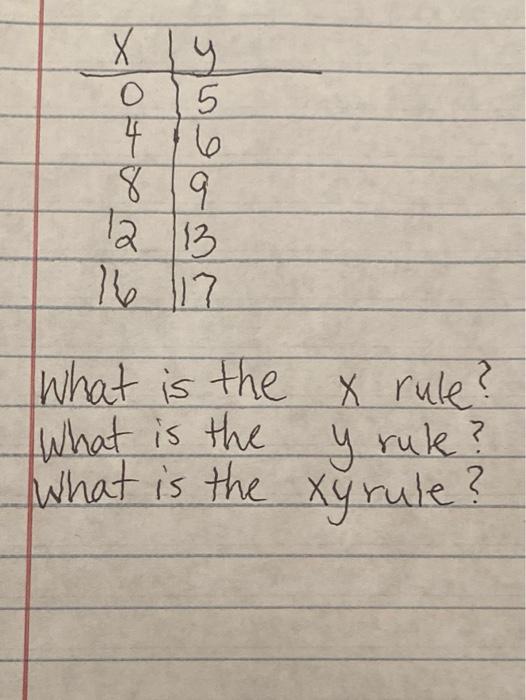 x y
0 5
4 6
8 9
12 13
16 17
What is the x rule?
What is the y rule?
What is the xy rule?